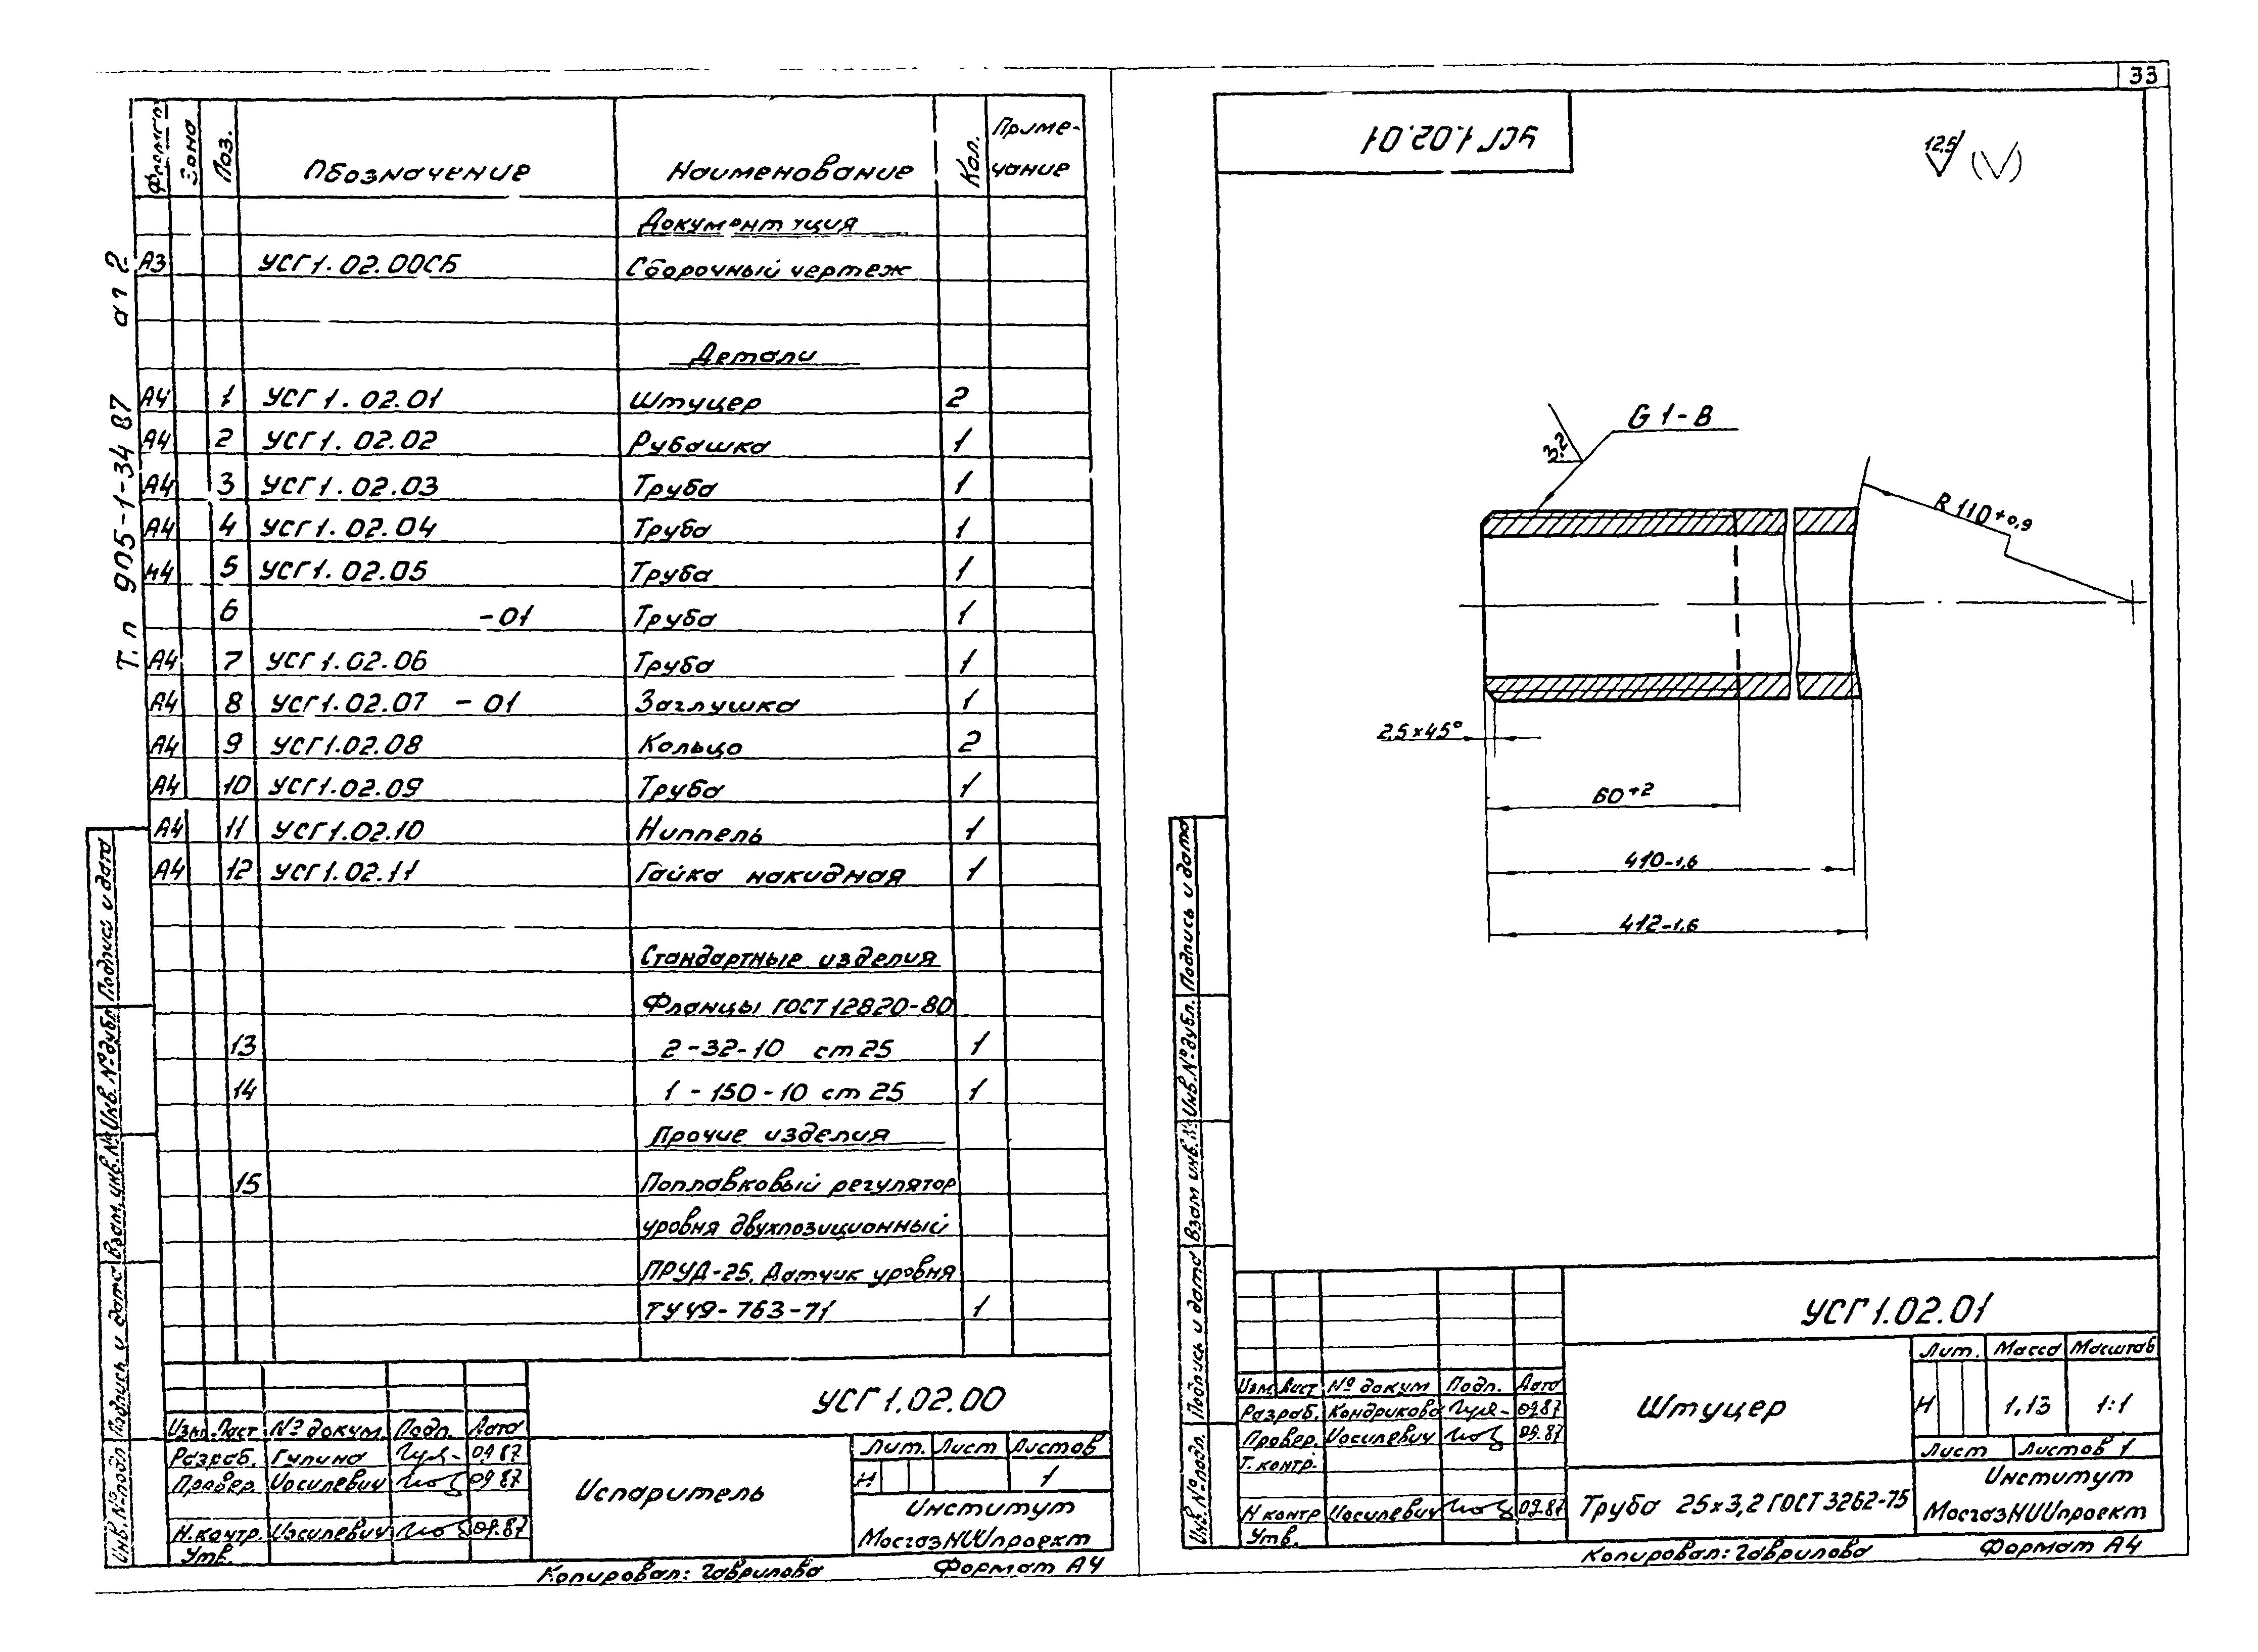 33
Т.п 905-1-34 87 ал 2
Формат Зона Поз. Обозначение Наименование Кол. Приме-
чание
Документация
А3 УСГ1.02.00СБ Сборочный чертеж
Детали
А4 1 УСГ1.02.01 Штуцер 2
А4 2 УСГ1.02.02 Рубашка 1
А4 3 УСГ1.02.03 Труба 1
А4 4 УСГ1.02.04 Труба 1
А4 5 УСГ1.02.05 Труба 1
6 -01 Труба 1
А4 7 УСГ1.02.06 Труба 1
А4 8 УСГ1.02.07 -01 Заглушка 1
А4 9 УСГ1.02.08 Кольцо 2
А4 10 УСГ1.02.09 Труба 1
А4 11 УСГ1.02.10 Ниппель 1
А4 12 УСГ1.02.11 Гайка накидная 1
Стандартные изделия
Фланцы ГОСТ12820-80
13 2-32-10 ст25 1
14 1-150-10 ст25 1
Прочие изделия
15 Поплавковый регулятор
уровня двухпозиционный
ПРУД-25. Датчик уровня
ТУ49-763-71 1
Инв.№подл Подпись и дата Взам.инв.№ Инв.№дубл Подпись и дата
УСГ1.02.00
Изм Лист № докум Подп. Дата
Разраб. Гулина 09.87
Провер. Иосилевич 09.87
Н.контр. Иосилевич 09.87
Утв.
Испаритель
Лит. Лист Листов
И 1
Институт
МосгазНИИпроект
Копировал: Гаврилова Формат А4
УСГ1.02.01
12,5
3,2
G 1-В
R 110+0,9
2,5×45°
60+2
410-1,6
412-1,6
Инв.№подл. Подпись и дата Взам инв.№ Инв.№дубл. Подпись и дата
УСГ1.02.01
Изм Лист № докум Подп. Дата
Разраб. Кондрикова 09.87
Провер. Иосилевич 09.87
Т.контр.
Н контр Иосилевич 09.87
Утв.
Штуцер
Лит. Масса Масштаб
И 1,13 1:1
Лист Листов 1
Труба 25×3,2 ГОСТ3262-75
Институт
МосгазНИИпроект
Копировал: Гаврилова Формат А4